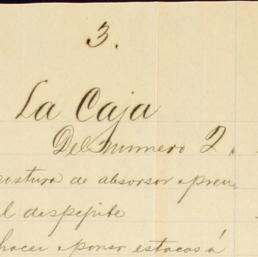 3.
La Caja
Del numero 2.
postura de absorsor a preu
l despépite
hacer a poner estacas á